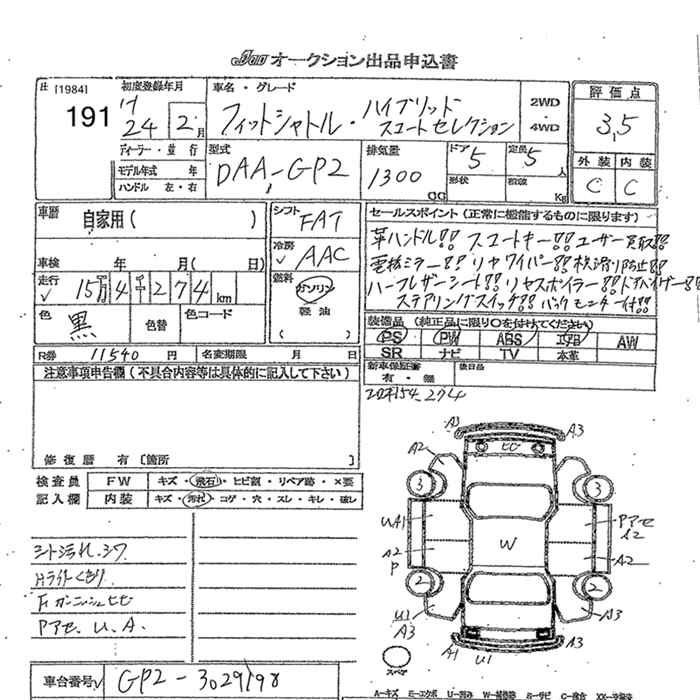 JAA オークション出品申込書
[1984]
191
初度登録年月
H 24年 2月
車名・グレード
フィットシャトル・ハイブリッド スマートセレクション
2WD
・
4WD
評価点
3,5
ディーラー・並行
モデル年式 年
ハンドル 左・右
型式
DAA-GP2
排気量
1300 cc
ドア 5
形状
定員 5 人
積載 Kg
外装 内装
C C
車歴
自家用( )
シフト FAT
冷房 AAC
燃料
ガソリン
軽油
( )
車検 年 月( 日)
走行 15万4千274 km
色 黒
色替
色コード
R券 11540 円
名変期限 月 日
セールスポイント(正常に機能するものに限ります)
革ハンドル!! スマートキー!! ユーザー買取!!
電格ミラー!! リヤワイパー!! 横滑り防止!!
ハーフレザーシート!! リヤスポイラー!! ドアバイザー!!
ステアリングスイッチ!! バックモニター付!!
装備品(純正品に限り○を付けてください)
PS PW ABS エアB AW
SR ナビ TV 本革
新車保証書
有・無
後日品
注意事項申告欄(不具合内容等は具体的に記入して下さい)
修復歴 有〔箇所 〕
検査員
記入欄
FW キズ・飛石・ヒビ割・リペア跡・×要
内装 キズ・汚れ・コゲ・穴・スレ・キレ・破レ
シート汚れ.シワ
Hライトくもり
Fガーニッシュヒビ
Pアセ.U.A.
A1 ヒビ A3
A2 A3
3 3
UA1 Pアセ
A2
A2 W A2
P
2 2
U1 A3
A3
A1 U1 A3
スペア
車台番号 GP2-3029198
A-キズ E-エクボ